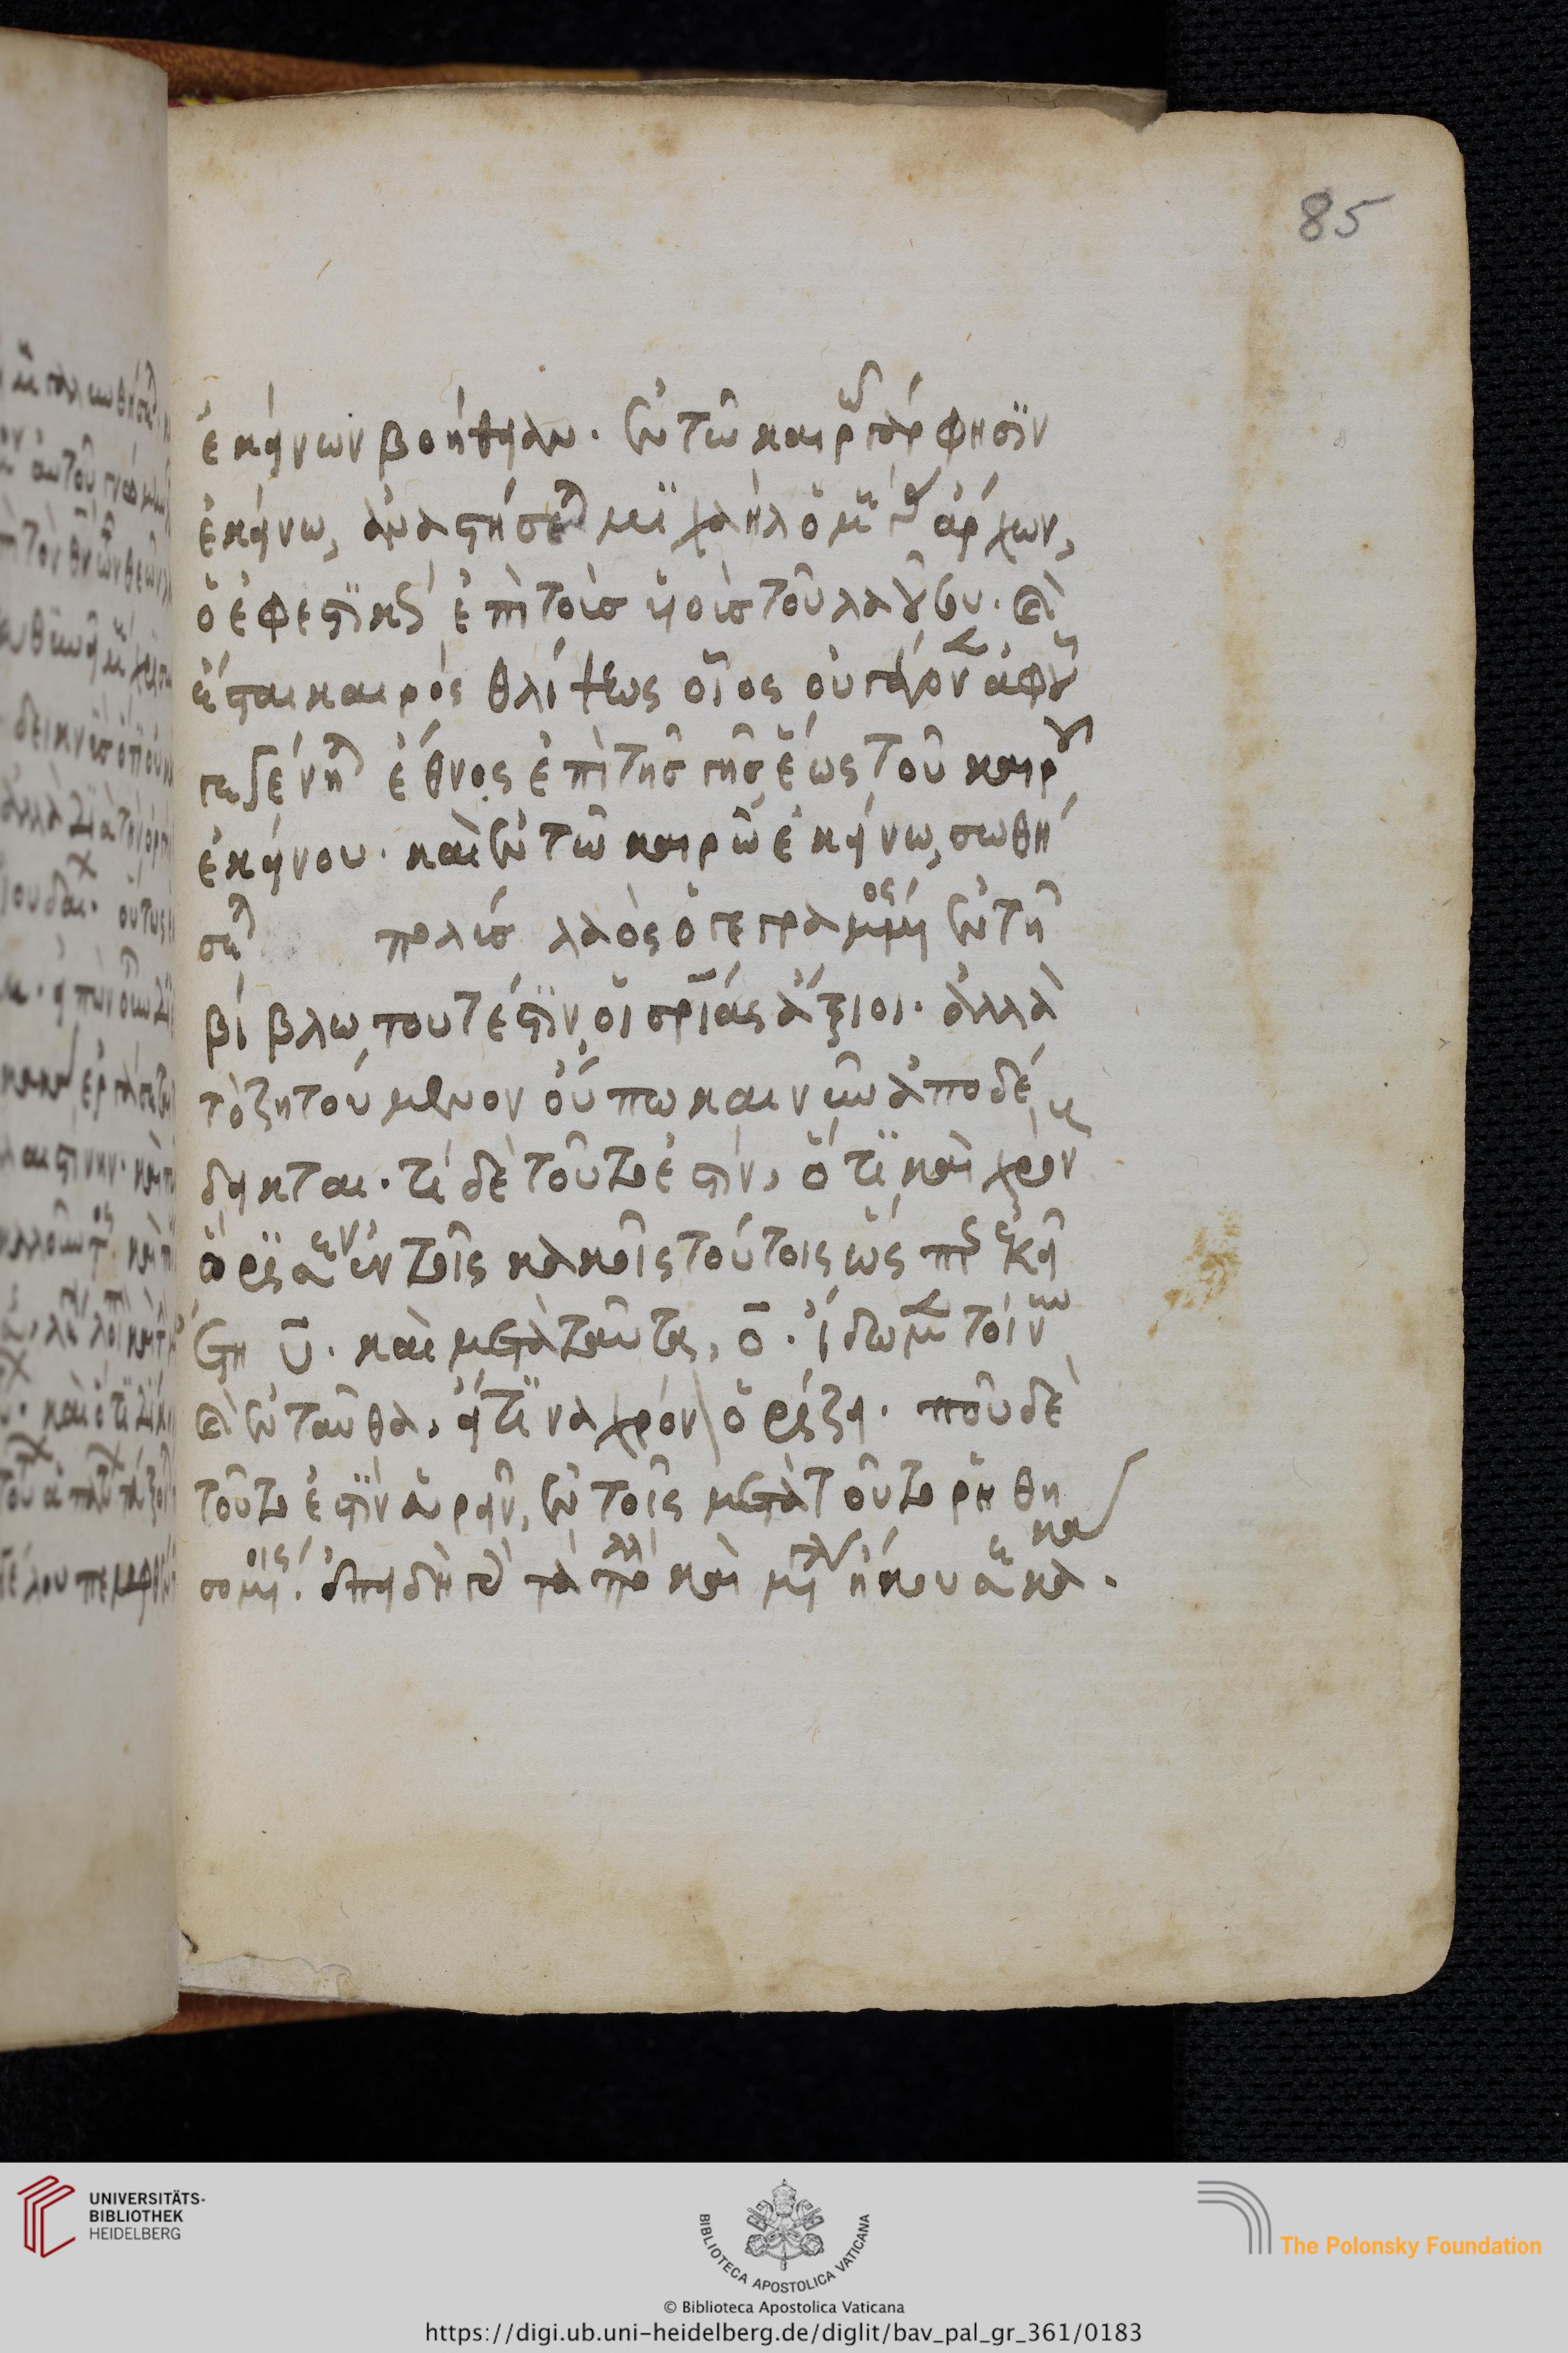 85
ἐκείνων βοήθειαν. ἐν τῶ καιρῶ γάρ φησϊν
ἐκείνω, ἀναστήσεται μϊχαὴλ ὁ μέγας ἄρχων,
ὁ ἐφεστϊκὼς ἐπὶ τοῖσ υἱοῖσ τοῦ λαοῦ σου. καὶ
ἔσται καιρός θλίψεως οἵος οὐ γέγονεν ἀφ οὗ
γεγένηται ἔθνος ἐπὶ τῆσ γῆς ἕως τοῦ καιροῦ
ἐκείνου. καὶ ἐν τῶ καιρῶ ἐκείνω, σωθή
σεται πολισ λαὸς ὁ γεγραμμένος ἐν τῆ
βίβλω, τουτέστϊν, οἱ σωτηρίας ἄξιοι. ἀλλὰ
τὸ ζητούμενον οὔπω καὶ νῦν ἀποδέ
δεικται. τί δὲ τοῦτο ἐστίν, ὅτϊ καὶ χρόνον
ὥρϊσεν ἐν τοῖς κακοῖς τούτοις, ὡς πρὸς ἐκεῖ
τη υ. καὶ μετὰ ταῦτα, ο. ἴδωμεν τοίνυν
καὶ ἐνταῦθα, εἴ τϊνα χρόνον ὁρίζει. ποῦ δὲ
τοῦτο ἐστϊν εὑρεῖν, ἐν τοῖς μετὰ τοῦτο ῥηθη
σομένοις. ἐπειδὴ γὰρ τὰ πολλὰ καὶ μεγάλα ἤκουσε κακὰ.
UNIVERSITÄTS-
BIBLIOTHEK
HEIDELBERG
BIBLIOTECA APOSTOLICA VATICANA
The Polonsky Foundation
© Biblioteca Apostolica Vaticana
https://digi.ub.uni-heidelberg.de/diglit/bav_pal_gr_361/0183